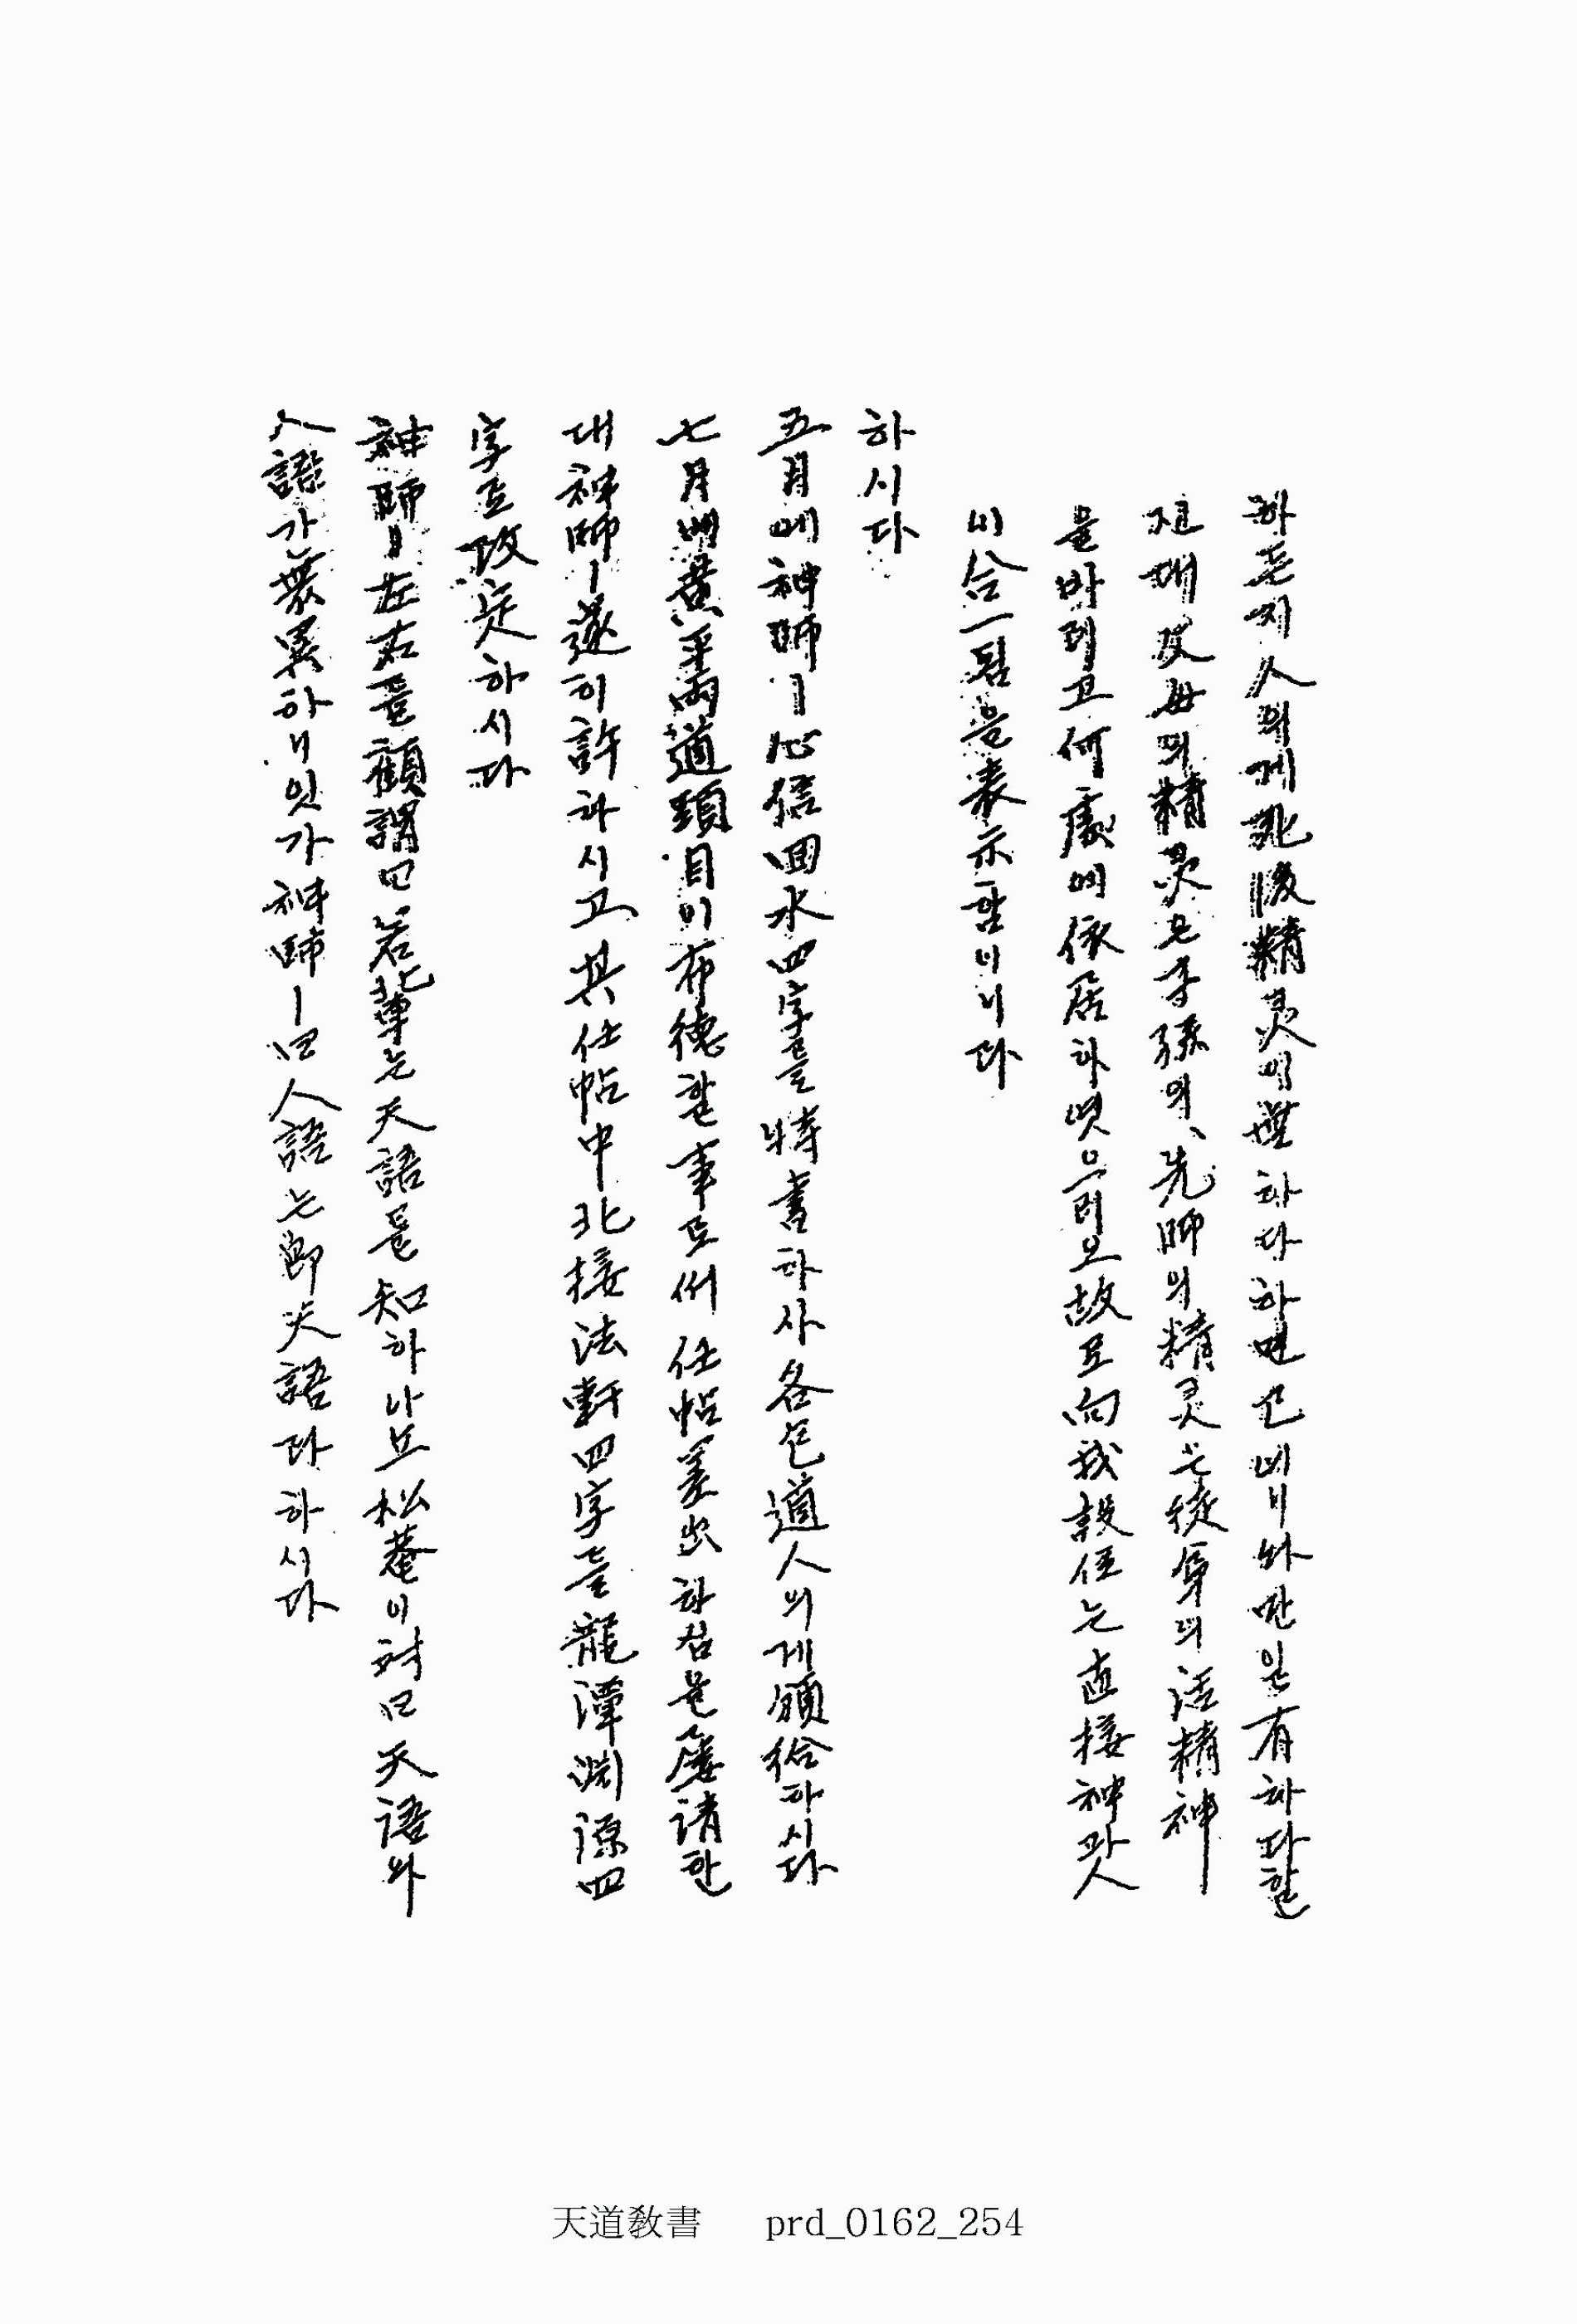 하든지 人의게 死後精灵이 無하다하면 므내니와 만일 有하다할
진대 父母의 精灵은 子孫의, 先師의 精灵은 徒弟의 活精神
을 바리고 何處에 依居하엿으리오 故로 向我設位는 直接 神과人
이 合一됨을 表示함니니다
하시다
五月에 神師ㅣ 心信回水 四字를 特書하사 各包道人의게 頒給하시다
七月에 黃平兩道頭目이 布德할 事로써 任帖差出하심을 屢請한
대 神師ㅣ 遂히 許하시고 其 任帖中 北接法軒 四字를 龍潭淵源 四
字로 改定하시다
神師ㅣ 左右를 顧謂曰 若輩는 天語를 知하나뇨 松菴이 對曰 天語와
人語가 無異하니잇가 神師ㅣ曰 人語는 卽 天語라 하시다
天道敎書 prd_0162_254